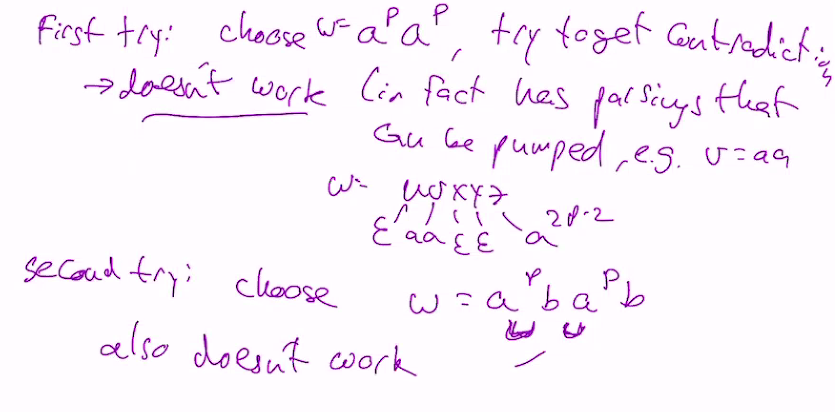 First try: choose w= a^p a^p, try to get Contradiction
→ doesn't work (in fact has parsings that
can be pumped, e.g. v=aa
w= uvxyz
ε aa ε ε a^2p-2
second try: choose w = a^p b a^p b
also doesn't work